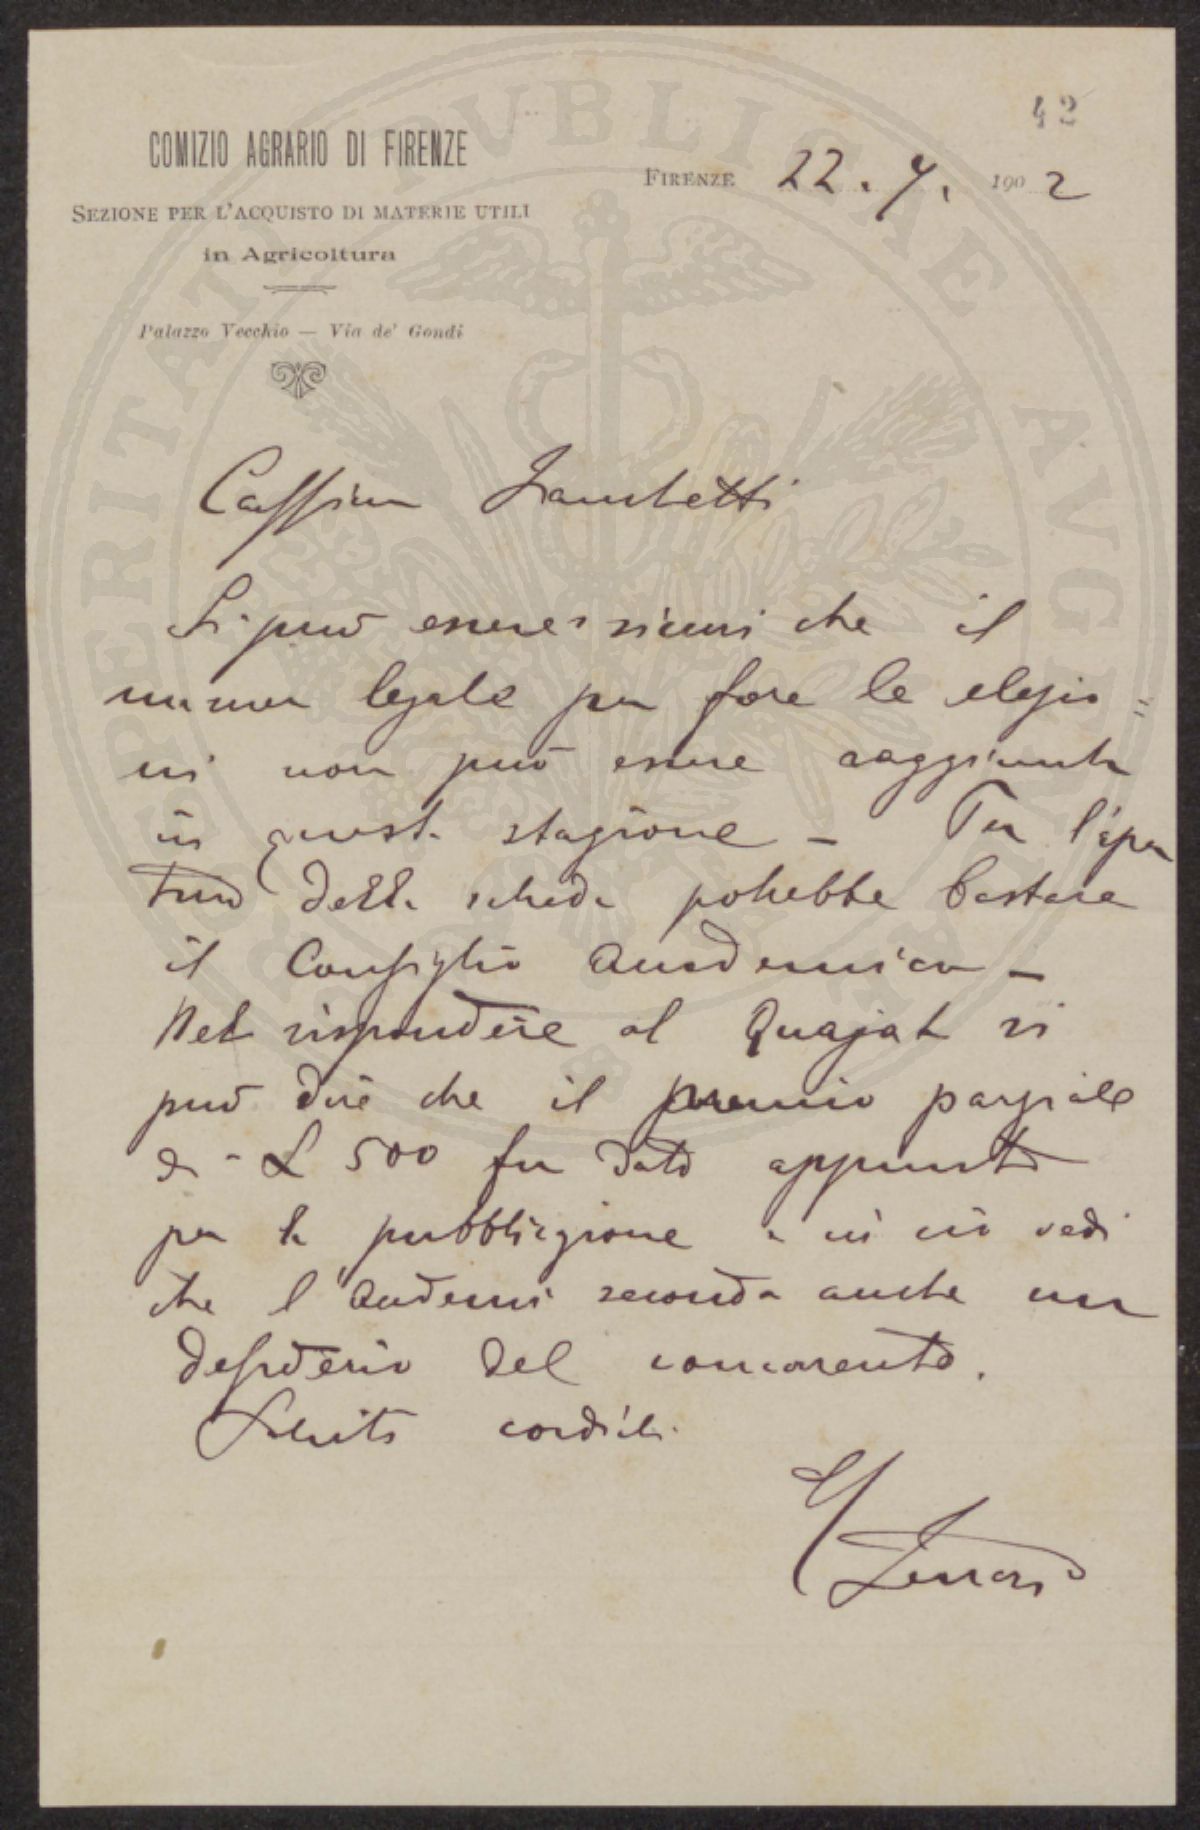 42
COMIZIO AGRARIO DI FIRENZE
SEZIONE PER L'ACQUISTO DI MATERIE UTILI
in Agricoltura
Palazzo Vecchio — Via de' Gondi
FIRENZE 22. 7. 1902
PROSPERITATI PVBLICAE AVGENDAE
Si può essere sicuri che il
numero legale per fare le elezio=
ni non può essere raggiunto
in questa stagione — Per l'aper
tura della scheda potrebbe bastare
il Consiglio Accademico —
Nel rispondere al Quajat si
può dire che il premio parziale
di L 500 fu dato appunto
per la pubblicazione e in ciò vedi
che l'Accademia seconda anche un
desiderio del concorrente.
Saluti cordiali